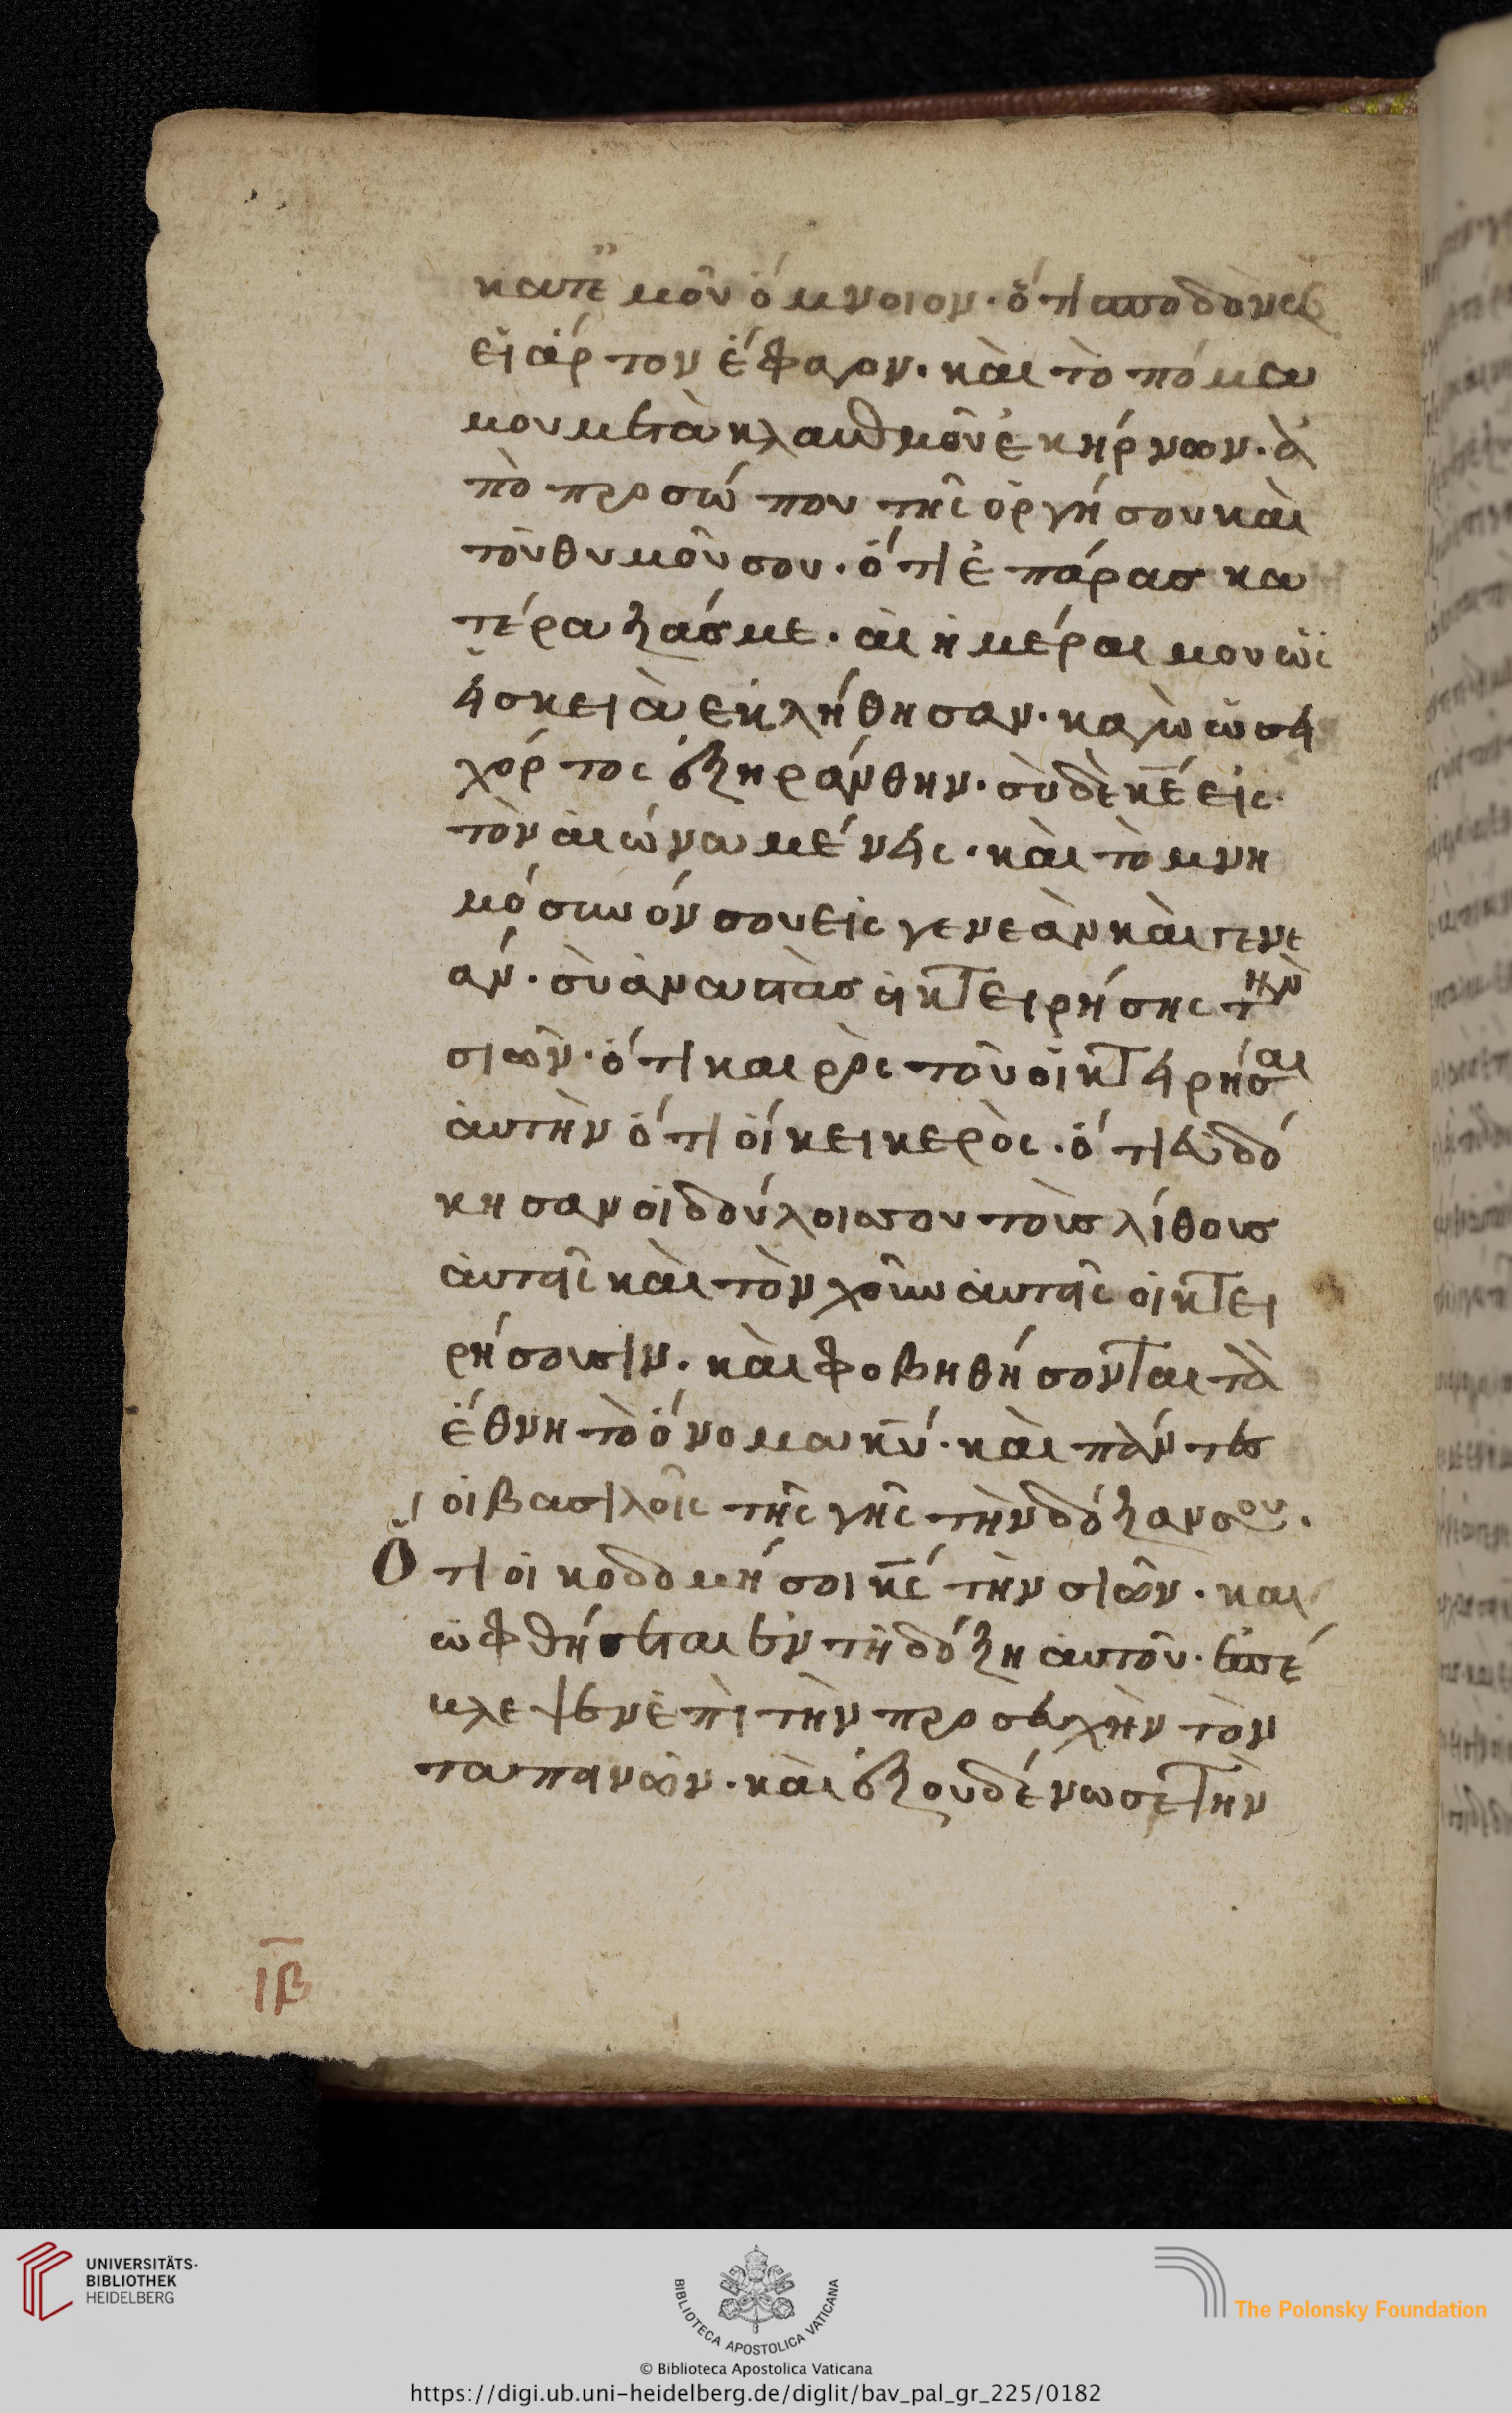 κατ' ἐμοῦ ὄμνοιον· ὅτι σποδὸν ὡ
εἰ ἄρτον ἔφαγον· καὶ τὸ πόμα
μου μετὰ κλαυθμοῦ ἐκήρνων· ἀ
πὸ προσώπου τῆς ὀργήσου καὶ
τοῦ θυμοῦ σου· ὅτι ἐπάρας κα
τέραξάς με· αἱ ἡμέραι μου ὡς
εἰ σκειὰ εκλήθησαν· καγὼ ὡσεὶ
χόρτος ἐξηράνθην· σὺ δὲ κ̅ε̅ εἰς
τὸν αἰώνα μένεις· καὶ τὸ μνη
μόσυνόν σου εἰς γενεὰν καὶ γενε
άν· σὺ ἀναστὰς οἰκτειρήσης τὴν
σιών· ὅτι καιρὸς τοῦ οἰκτειρήσαι
ἀυτὴν ὅτι οἵκει κερὸς· ὅτι εὐδό
κησαν οἱ δούλοι σου τοὺς λίθους
ἀυτῆς καὶ τὸν χοῦν ἀυτῆς οἰκτει
ρήσουσιν· καὶ φοβηθήσονται τὰ
ἔθνη τὸ όνομα κ̅υ̅· καὶ πάντες
οἱ βασιλοῖς τῆς γῆς τὴν δόξαν σου·
Ὅτι οἰκοδομήσοι κ̅ς̅ τὴν σιών· και
ὠφθήσεται ἐν τῆ δόξη ἀυτοῦ· ἐπέ
κλεψεν ἐπὶ τὴν προσευχὴν τὸν
ταπεινών· καὶ ἐξουδένωσε τὴν
ι̅β̅
UNIVERSITÄTS-
BIBLIOTHEK
HEIDELBERG
BIBLIOTECA APOSTOLICA VATICANA
The Polonsky Foundation
© Biblioteca Apostolica Vaticana
https://digi.ub.uni-heidelberg.de/diglit/bav_pal_gr_225/0182